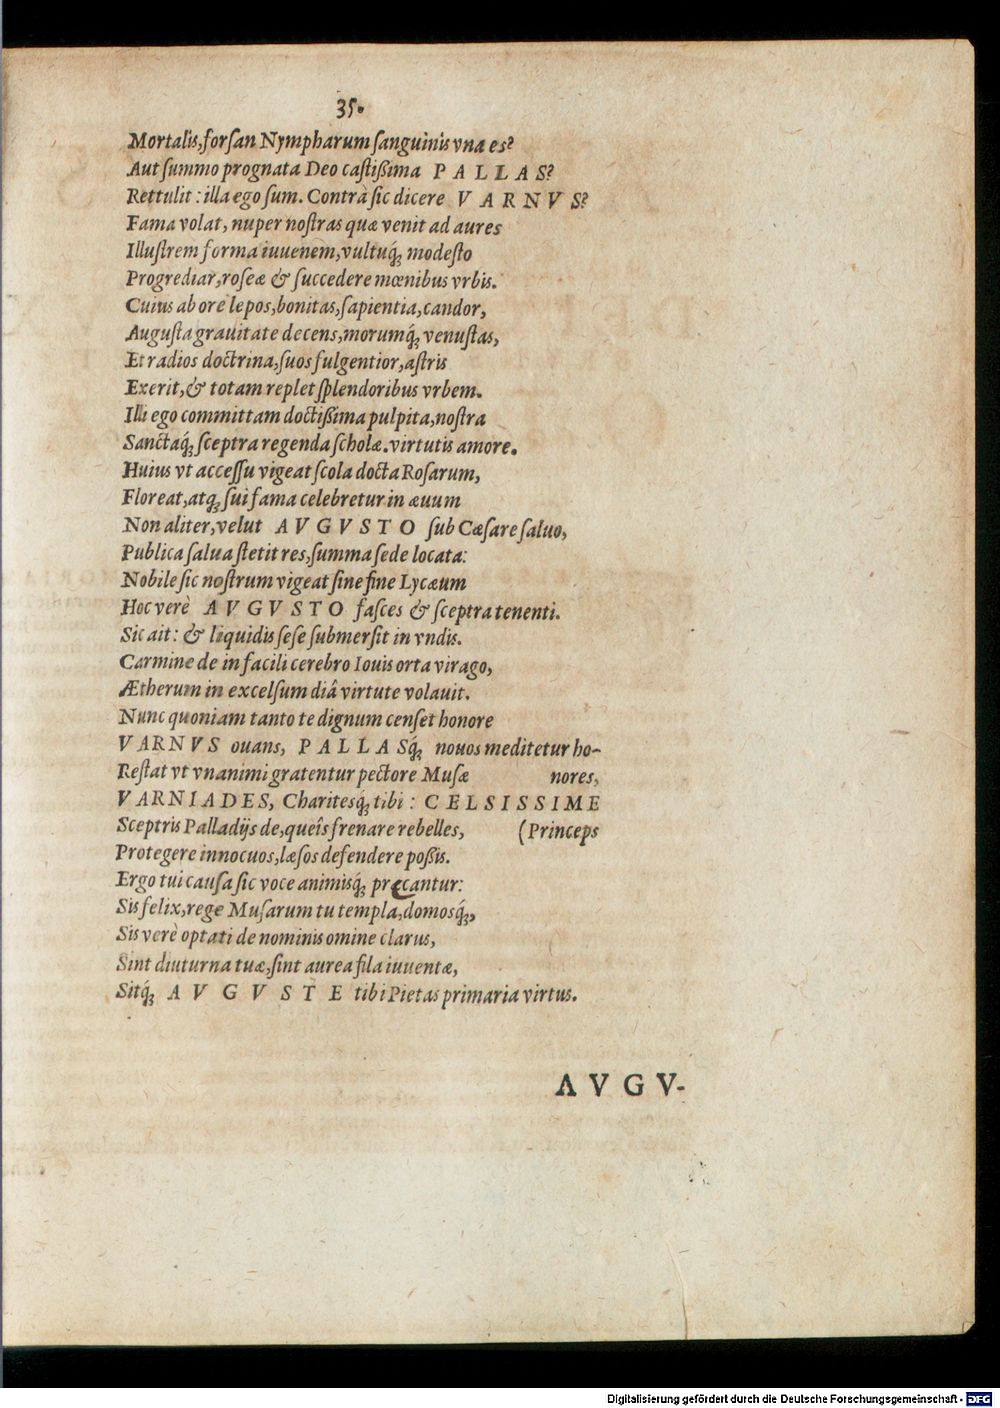 35.
Mortalis, forſan Nympharum ſanguinis vna es?
Aut ſummo prognata Deo caſtißima PALLAS?
Rettulit: illa ego ſum. Contrà ſic dicere VARNVS?
Fama volat, nuper noſtras quæ venit ad aures
Illuſtrem forma iuuenem, vultuq́ꝫ modeſto
Progrediar, roſeæ & ſuccedere mœnibus vrbis.
Cuius ab ore lepos, bonitas, ſapientia, candor,
Auguſta grauitate decens, morumq́ꝫ venuſtas,
Et radios doctrina, ſuos fulgentior, aſtris
Exerit, & totam replet ſplendoribus vrbem.
Illi ego committam doctißima pulpita, noſtra
Sanctaq́ꝫ ſceptra regenda ſcholæ. virtutis amore.
Huius vt acceſſu vigeat ſcola docta Roſarum,
Floreat, atqꝫ ſui fama celebretur in æuum
Non aliter, velut AVGVSTO ſub Cæſare ſaluo,
Publica ſalua ſtetit res, ſumma ſede locata:
Nobile ſic noſtrum vigeat ſine fine Lycæum
Hoc verè AVGVSTO faſces & ſceptra tenenti.
Sic ait: & liquidis ſeſe ſubmerſit in vndis.
Carmine de in facili cerebro Iouis orta virago,
Ætherum in excelſum diâ virtute volauit.
Nunc quoniam tanto te dignum cenſet honore
VARNVS ouans, PALLASq́ꝫ nouos meditetur ho-
Reſtat vt vnanimi gratentur pectore Muſæ nores,
VARNIADES, Charitesq́ꝫ tibi: CELSISSIME
Sceptris Palladijs de, queîs frenare rebelles, (Princeps
Protegere innocuos, læſos defendere poßis.
Ergo tui cauſa ſic voce animisq́ꝫ precantur:
Sis felix, rege Muſarum tu templa, domosq́ꝫ,
Sis verè optati de nominis omine clarus,
Sint diuturna tuæ, ſint aurea fila iuuentæ,
Sitq́ꝫ AVGVSTE tibi Pietas primaria virtus.
AVGV-
Digitalisierung gefördert durch die Deutsche Forschungsgemeinschaft - DFG